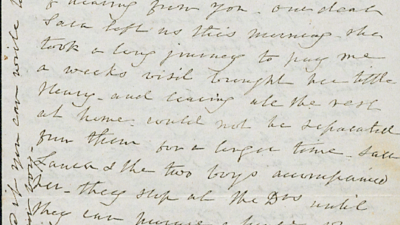 of hearing from you. our dear
Sara left us this morning, she
took a long journey to pay me
a weeks visit brought her little
Henry - and leaving all the rest
at home. would not be separated
from them for a longer time.
& the two boys accompanied
her - they stop at the Drs until
they can procure a
if you can write